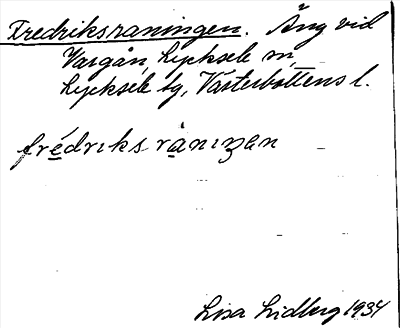 Fredriksraningen. Äng vid
Vargån, Lycksele sn,
Lycksele tg, Västerbottens l.
frédriks rånıŋen
Lisa Lidberg 1934